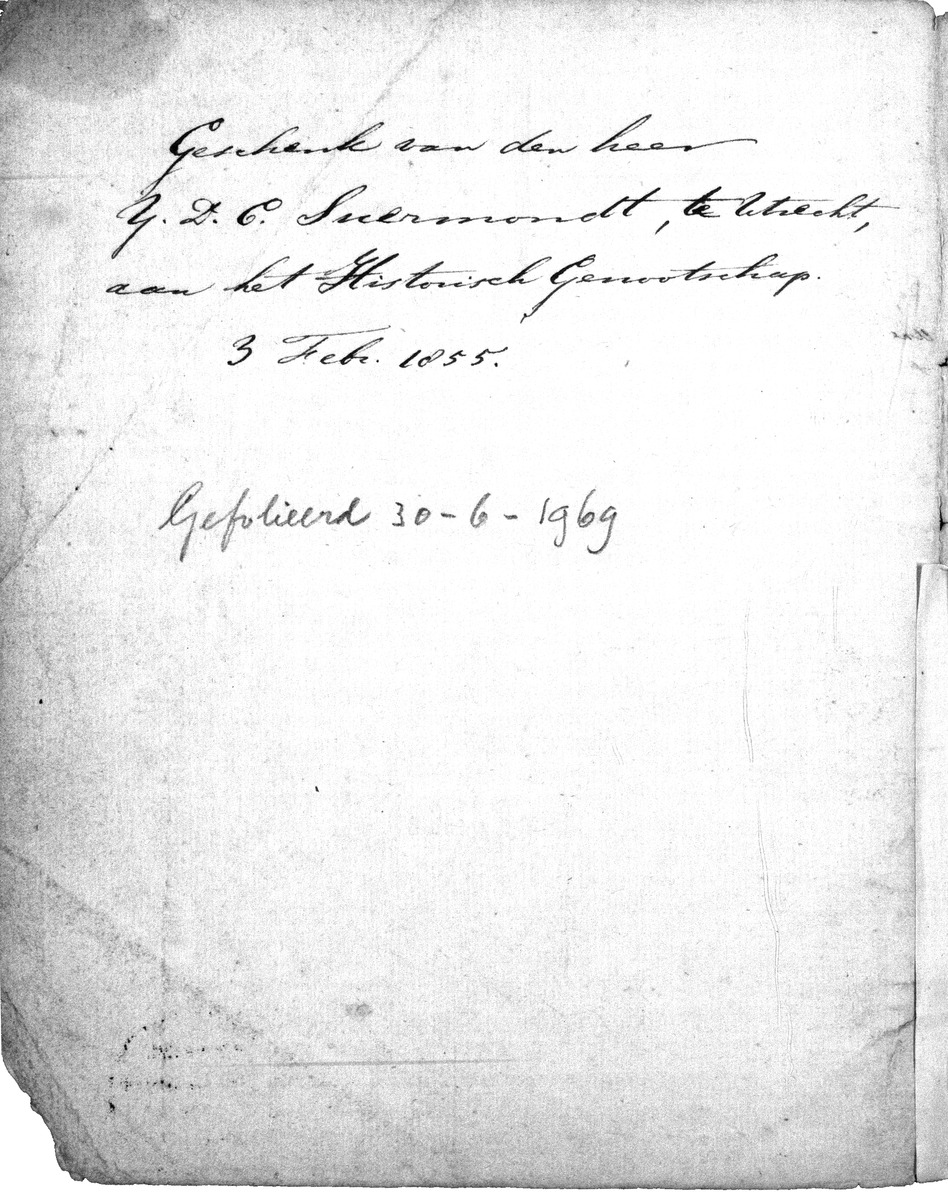 Geschenk van den heer
Y. D. C. Suermondt, te Utrecht,
aan het Historisch Genootschap.
3 Febr. 1855.
Gefolieerd 30-6-1969